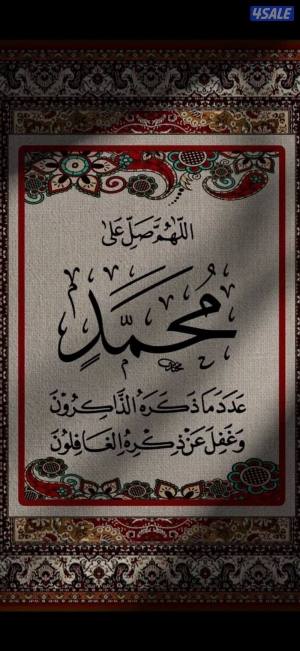 4SALE
اللّٰهُمَّ صَلِّ عَلىٰ
مُحَمَّدٍ
عَدَدَ مَا ذَكَرَهُ الذَّاكِرُونَ
وَغَفِلَ عَنْ ذِكْرِهِ الغَافِلُونَ